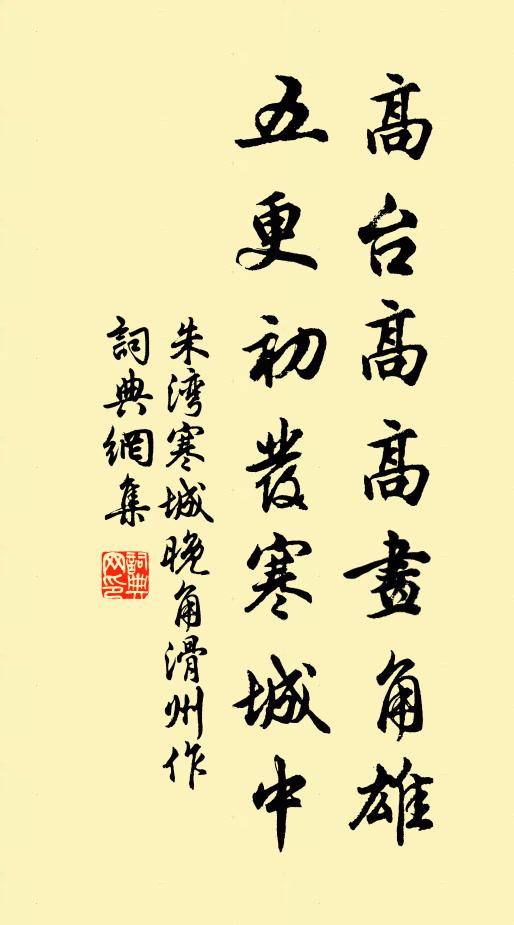 高台高高畫角雄
五更初發寒城中
朱湾寒城晚角滑州作
詞典網集
詞典網印